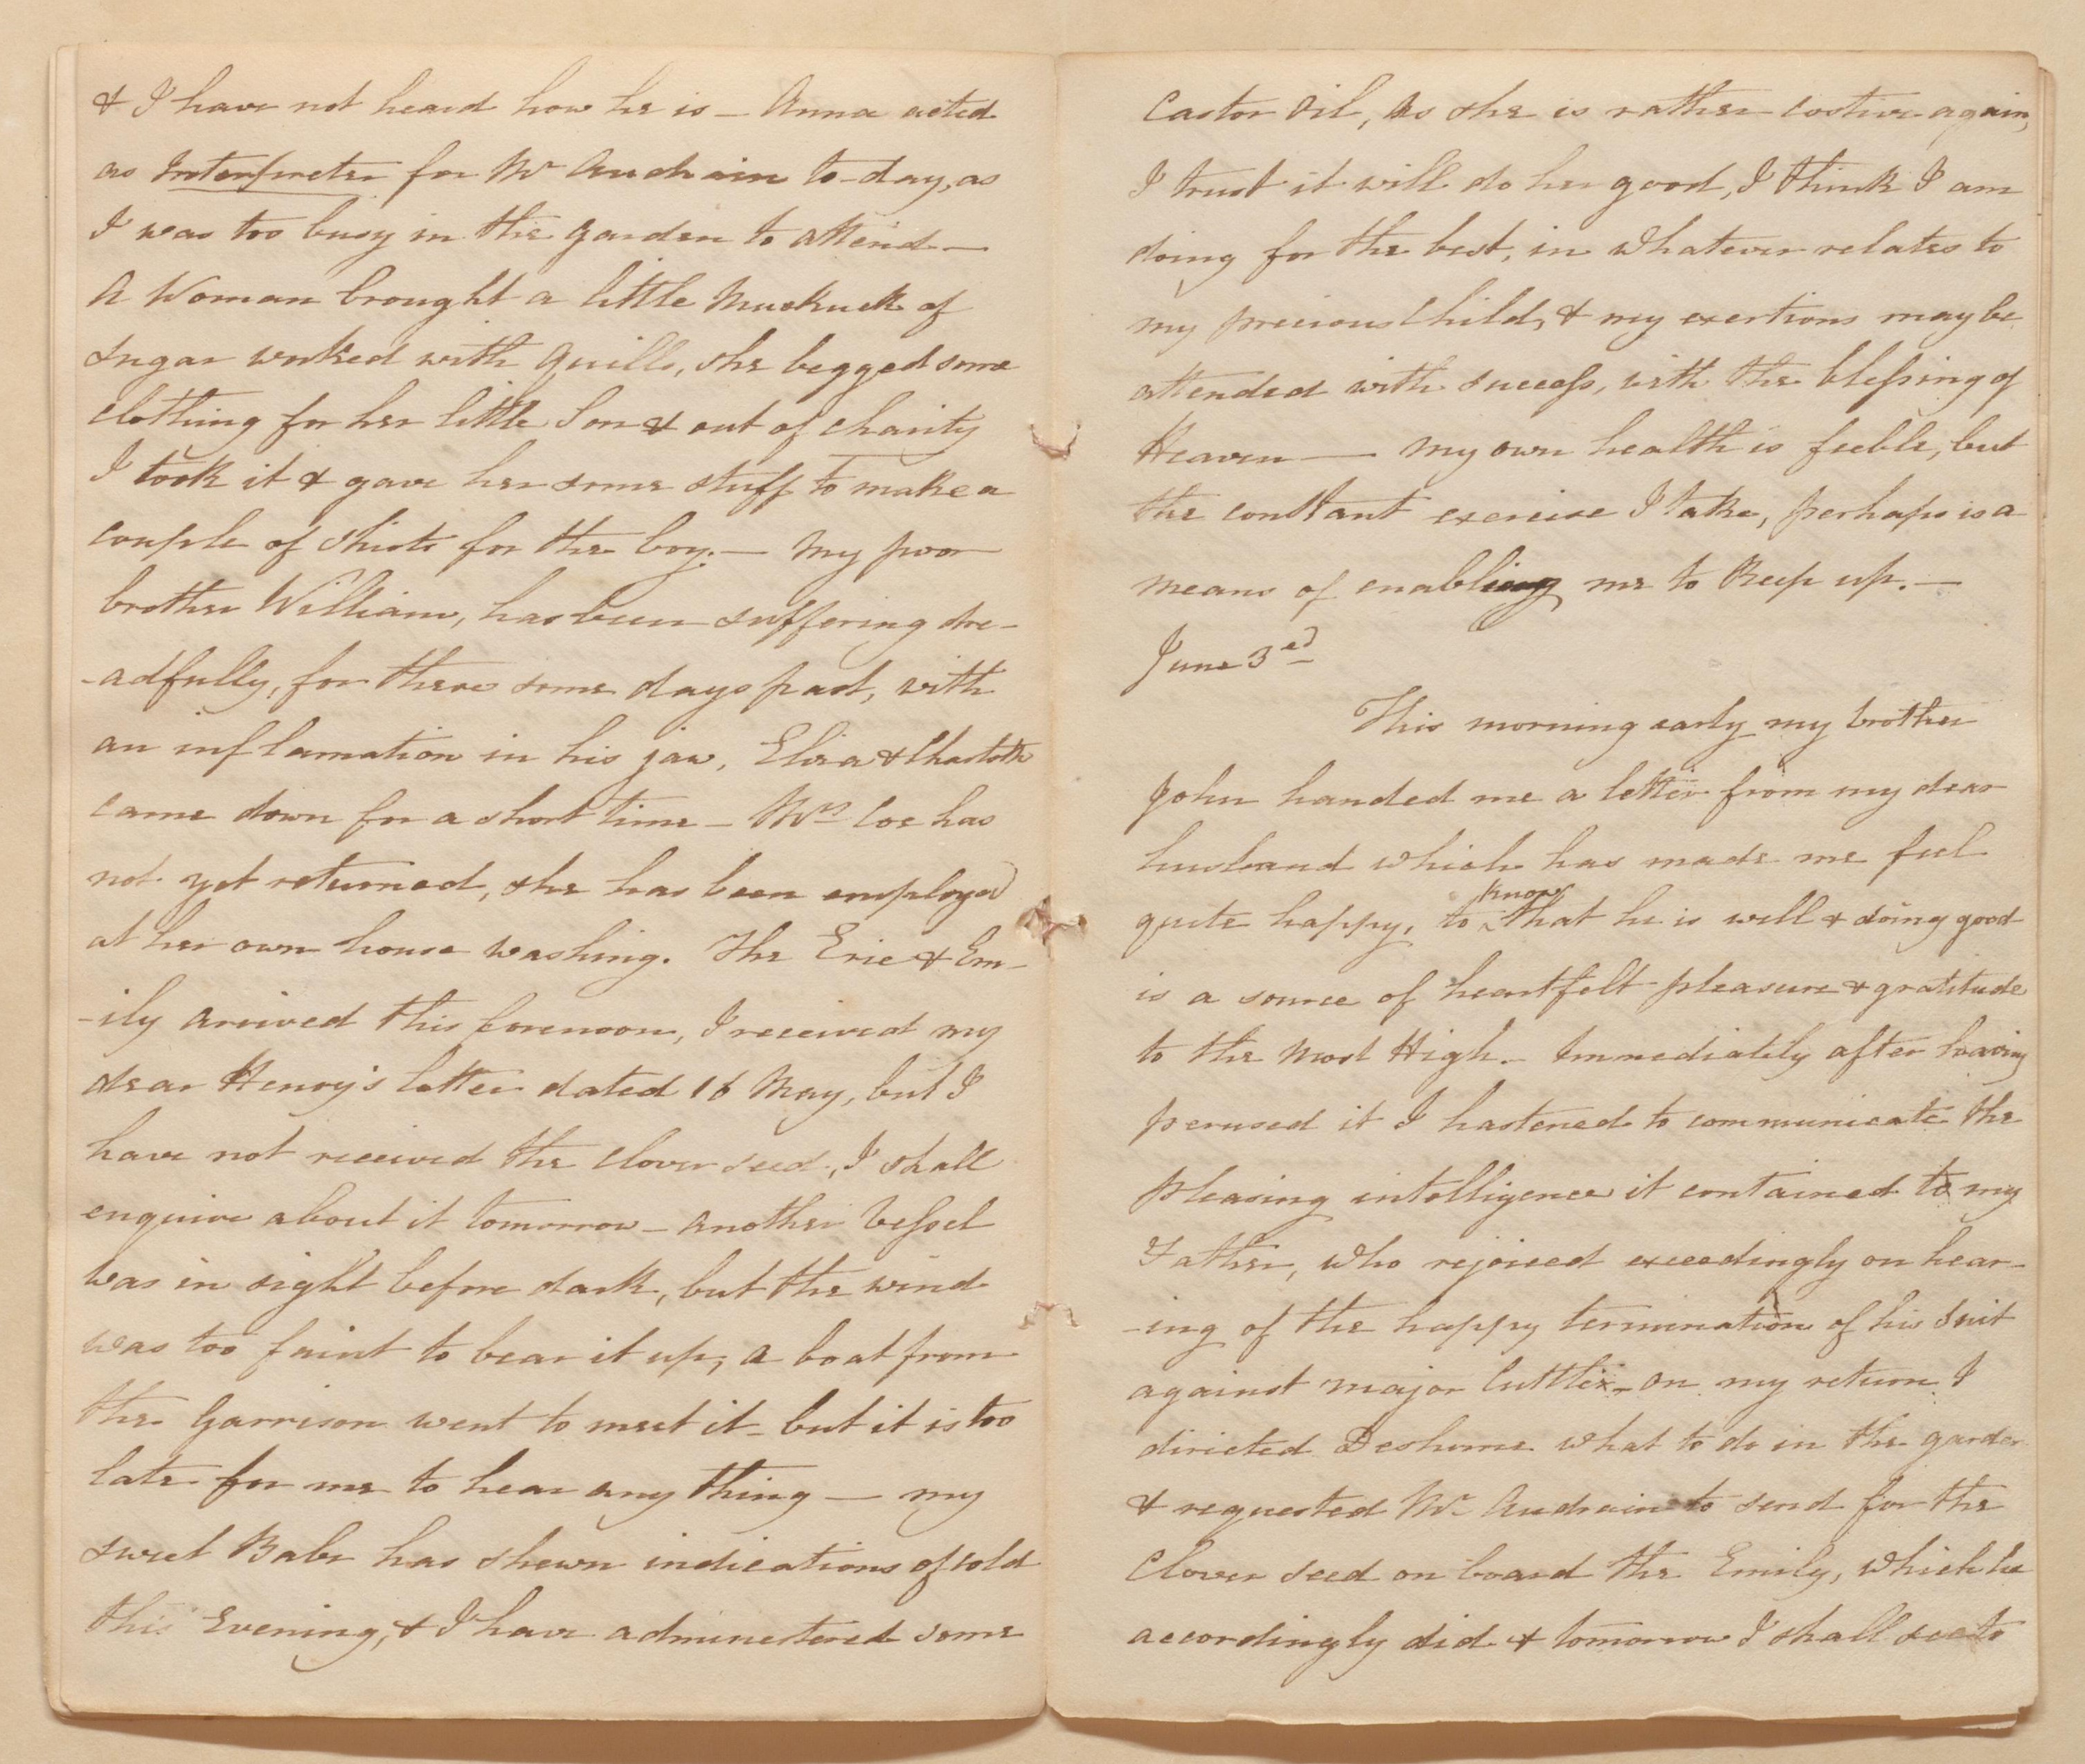 & I have not heard how he is — Anna acted
as Interpreter for Mr Audrain to-day, as
I was too busy in the garden to attend —
A Woman brought a little Muckuck of
sugar worked with quills, she begged some
clothing for her little Son & out of charity
I took it & gave her some stuff to make a
couple of shirts for the boy. — My poor
brother William, has been suffering dre-
-adfully, for these some days past, with
an inflamation in his jaw, Eliza & Charlotte
came down for a short time — Mrs Coe has
not yet returned, she has been employed
at her own house washing. The Erie & Em-
-ily arrived this forenoon, I received my
dear Henry's letter dated 16 May, but I
have not received the clover seed, I shall
enquire about it tomorrow — another Vessel
was in sight before dark, but the wind
was too faint to bear it up, a boat from
the Garrison went to meet it — but it is too
late for me to hear any thing — my
sweet Babe has shewn indications of cold
this Evening, & I have adminestered some
Castor Oil, as she is rather costive again,
I trust it will do her good, I think I am
doing for the best, in whatever relates to
my precious Child, & my exertions may be
attended with success, with the blessing of
Heaven — my own health is feeble, but
the constant exercise I take, perhaps is a
means of enabling me to keep up. —
June 3ed
This morning early my brother
John handed me a letter from my dear
husband which has made me feel
quite happy, to know that he is well & doing good
is a source of heartfelt pleasure & gratitude
to the Most High. — Immediately after having
perused it I hastened to communicate the
pleasing intelligence it contained to my
Father, who rejoiced exceedingly on hear-
-ing of the happy termination of his Suit
against Major Cuttler — on my return I
directed Deshome what to do in the garden
& requested Mr Audrain to send for the
Clover seed on board the Emily, which he
accordingly did & tomorrow I shall see to